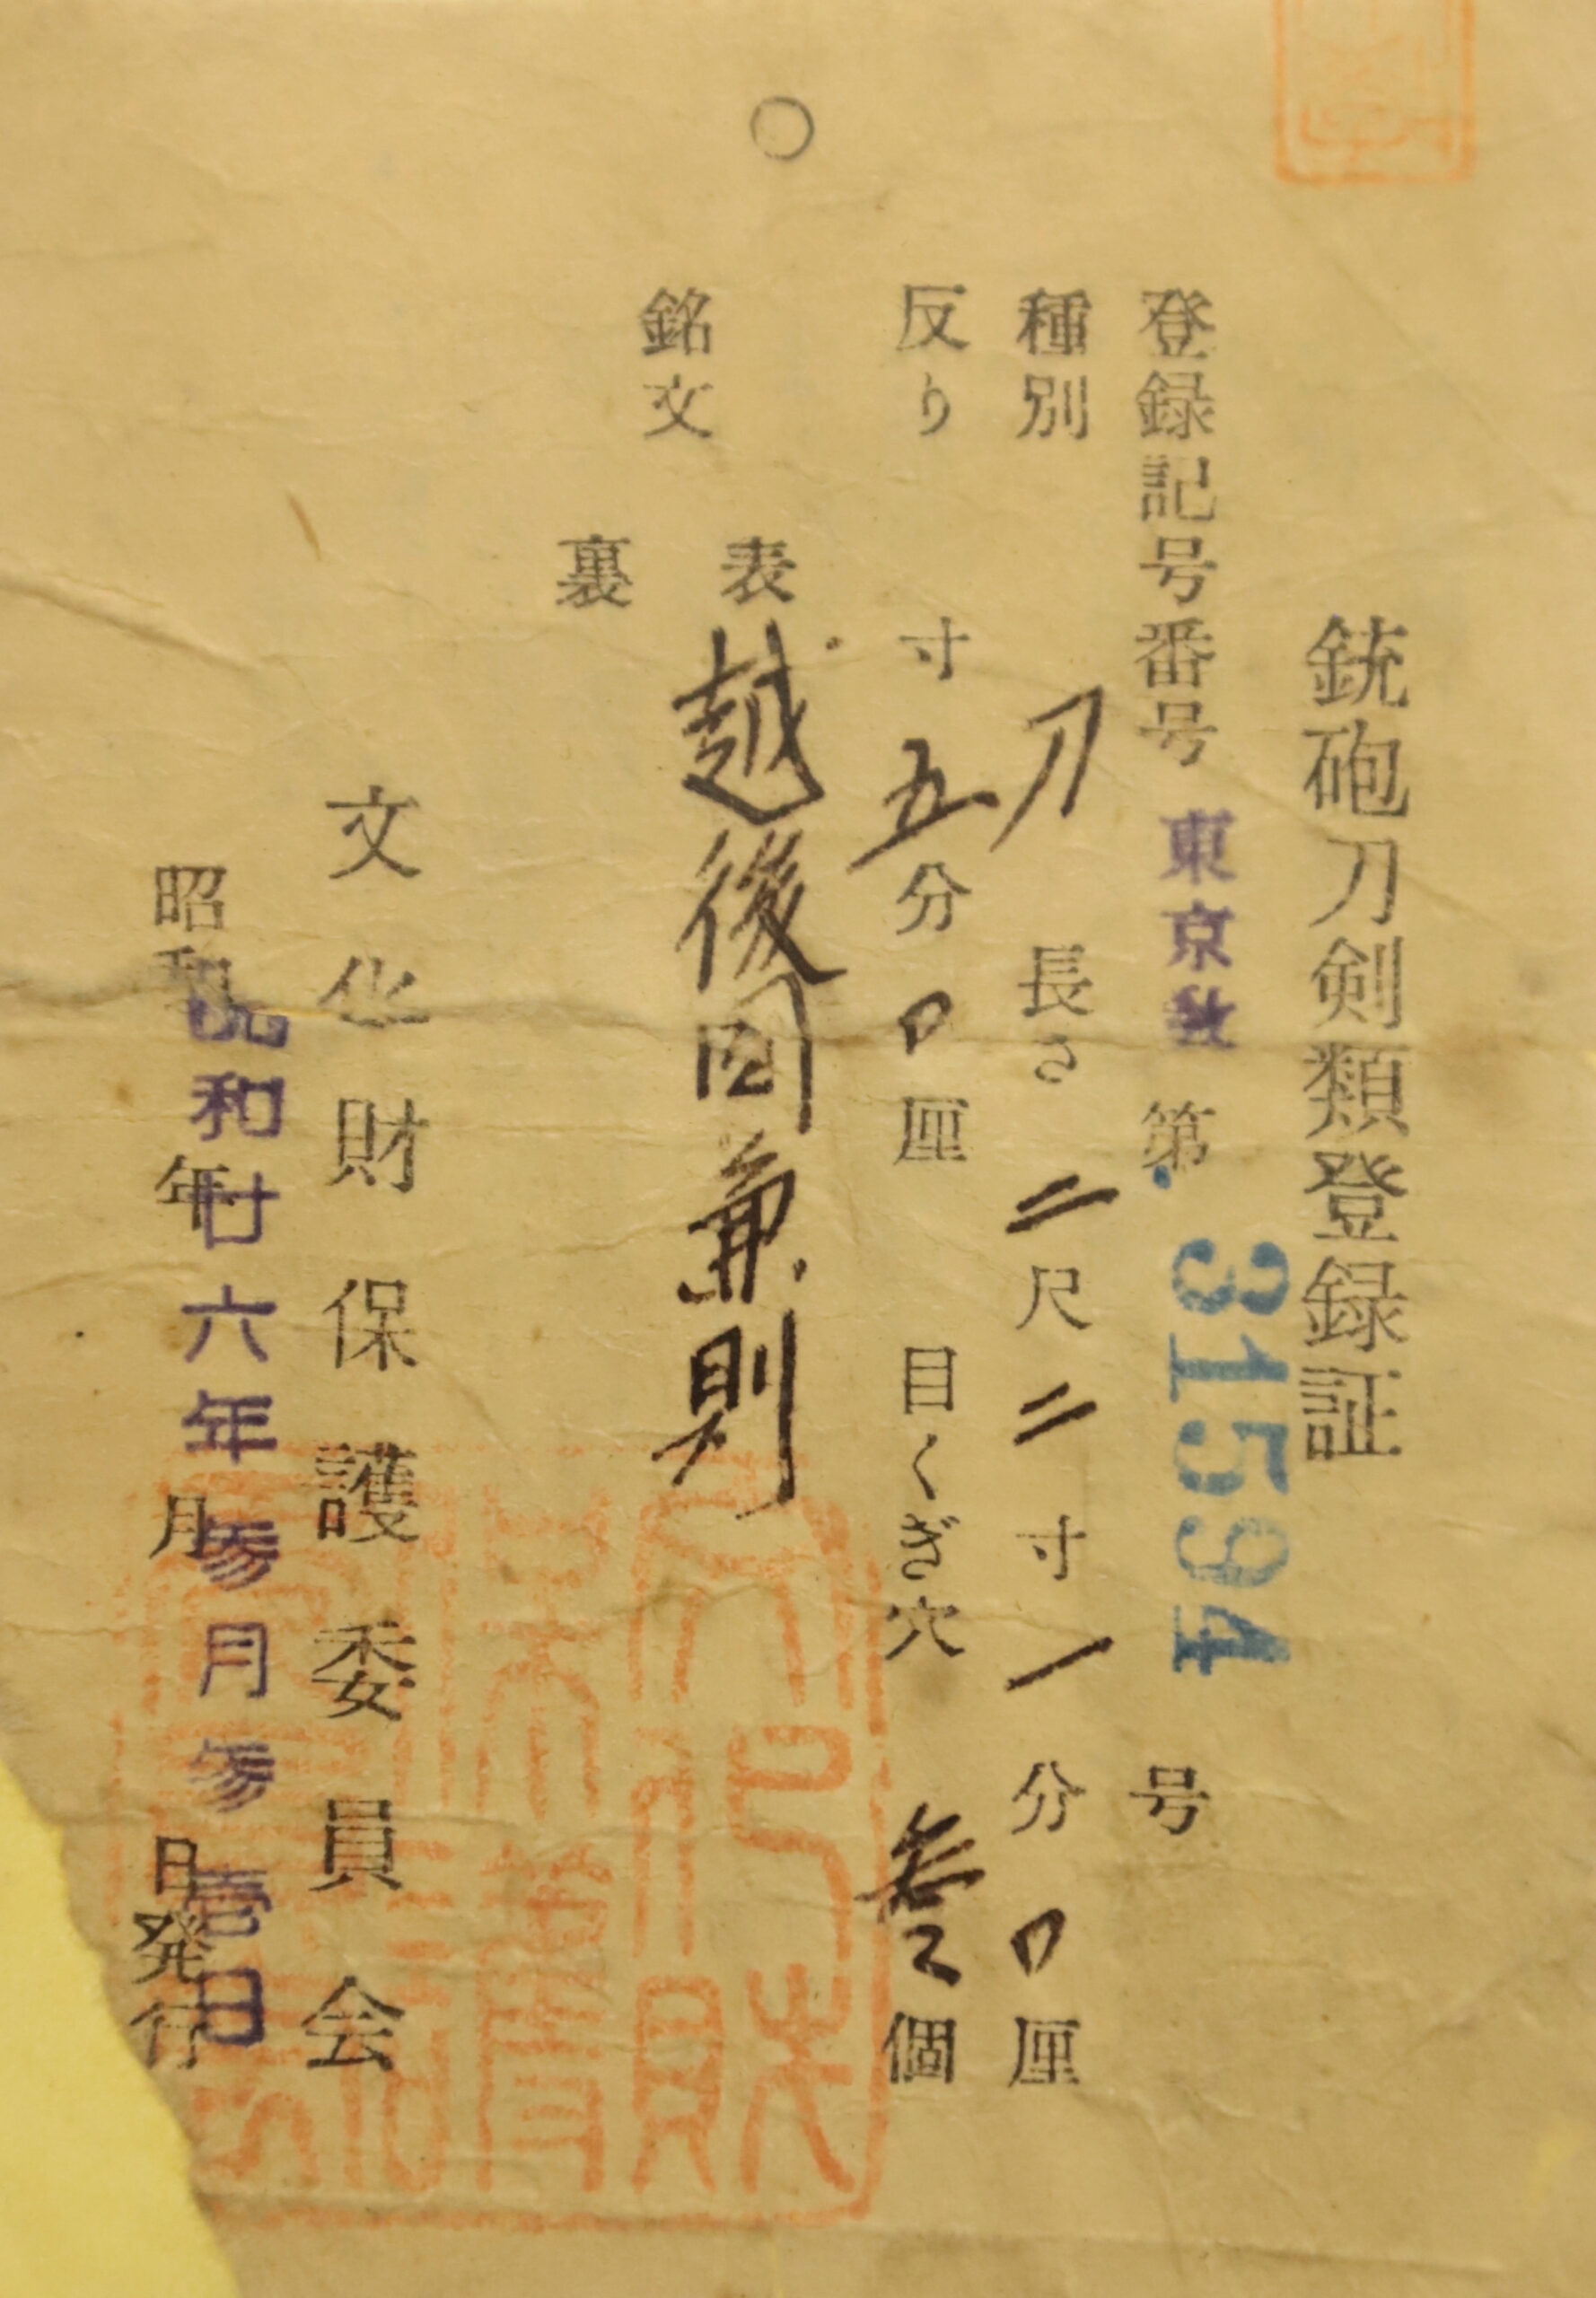 銃砲刀剣類登録証
登録記号番号 東京教 第 31594 号
種別 刀 長さ 二尺二寸一分0厘
反り 寸五分0厘 目くぎ穴 参個
銘文
表 越後国兼則
裏
文化財保護委員会
昭和 年 月 日発行
昭和廿六年参月参壱日